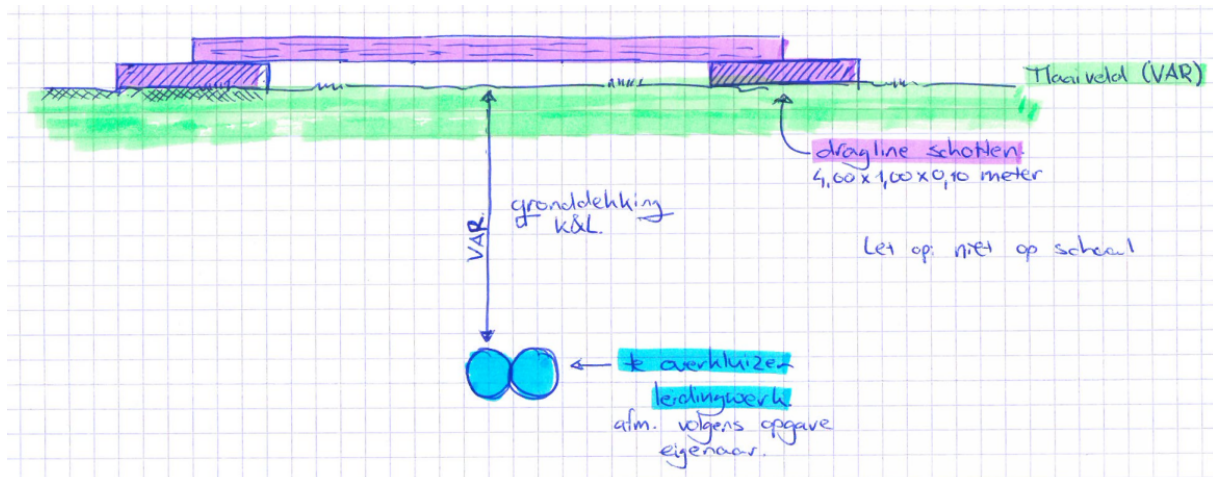 Maaiveld (VAR)
dragline schotten.
4,00 x 1,00 x 0,10 meter
gronddekking
K&L.
VAR.
Let op: niet op schaal
te overkluizen
leidingwerk.
afm. volgens opgave
eigenaar.